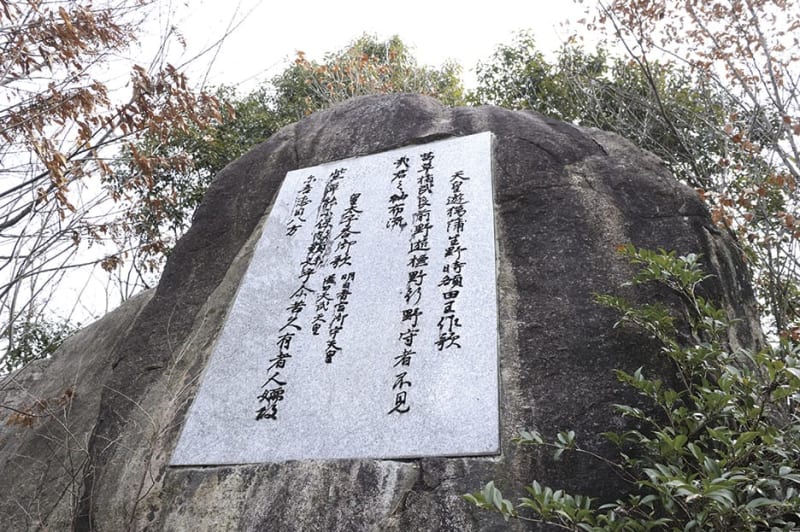 天皇遊獦蒲生野時額田王作歌
茜草指武良前野逝標野行野守者不見
哉君之袖布流
皇太子答御歌 明日香宮御宇天皇
謚曰天武天皇
紫草能尓保敝類妹乎尓苦久有者人嬬故
尓吾恋目八方